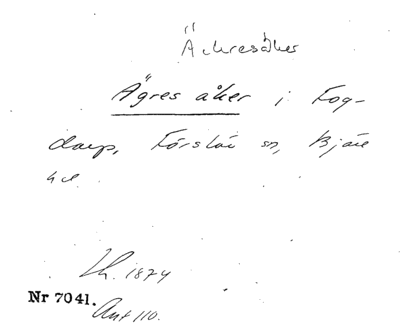 Äckresåker
Ägres åker i Fog-
darp, Förslöv sn, Bjäre
hd
Lh. 1874
Nr 7041.
Ant 110.